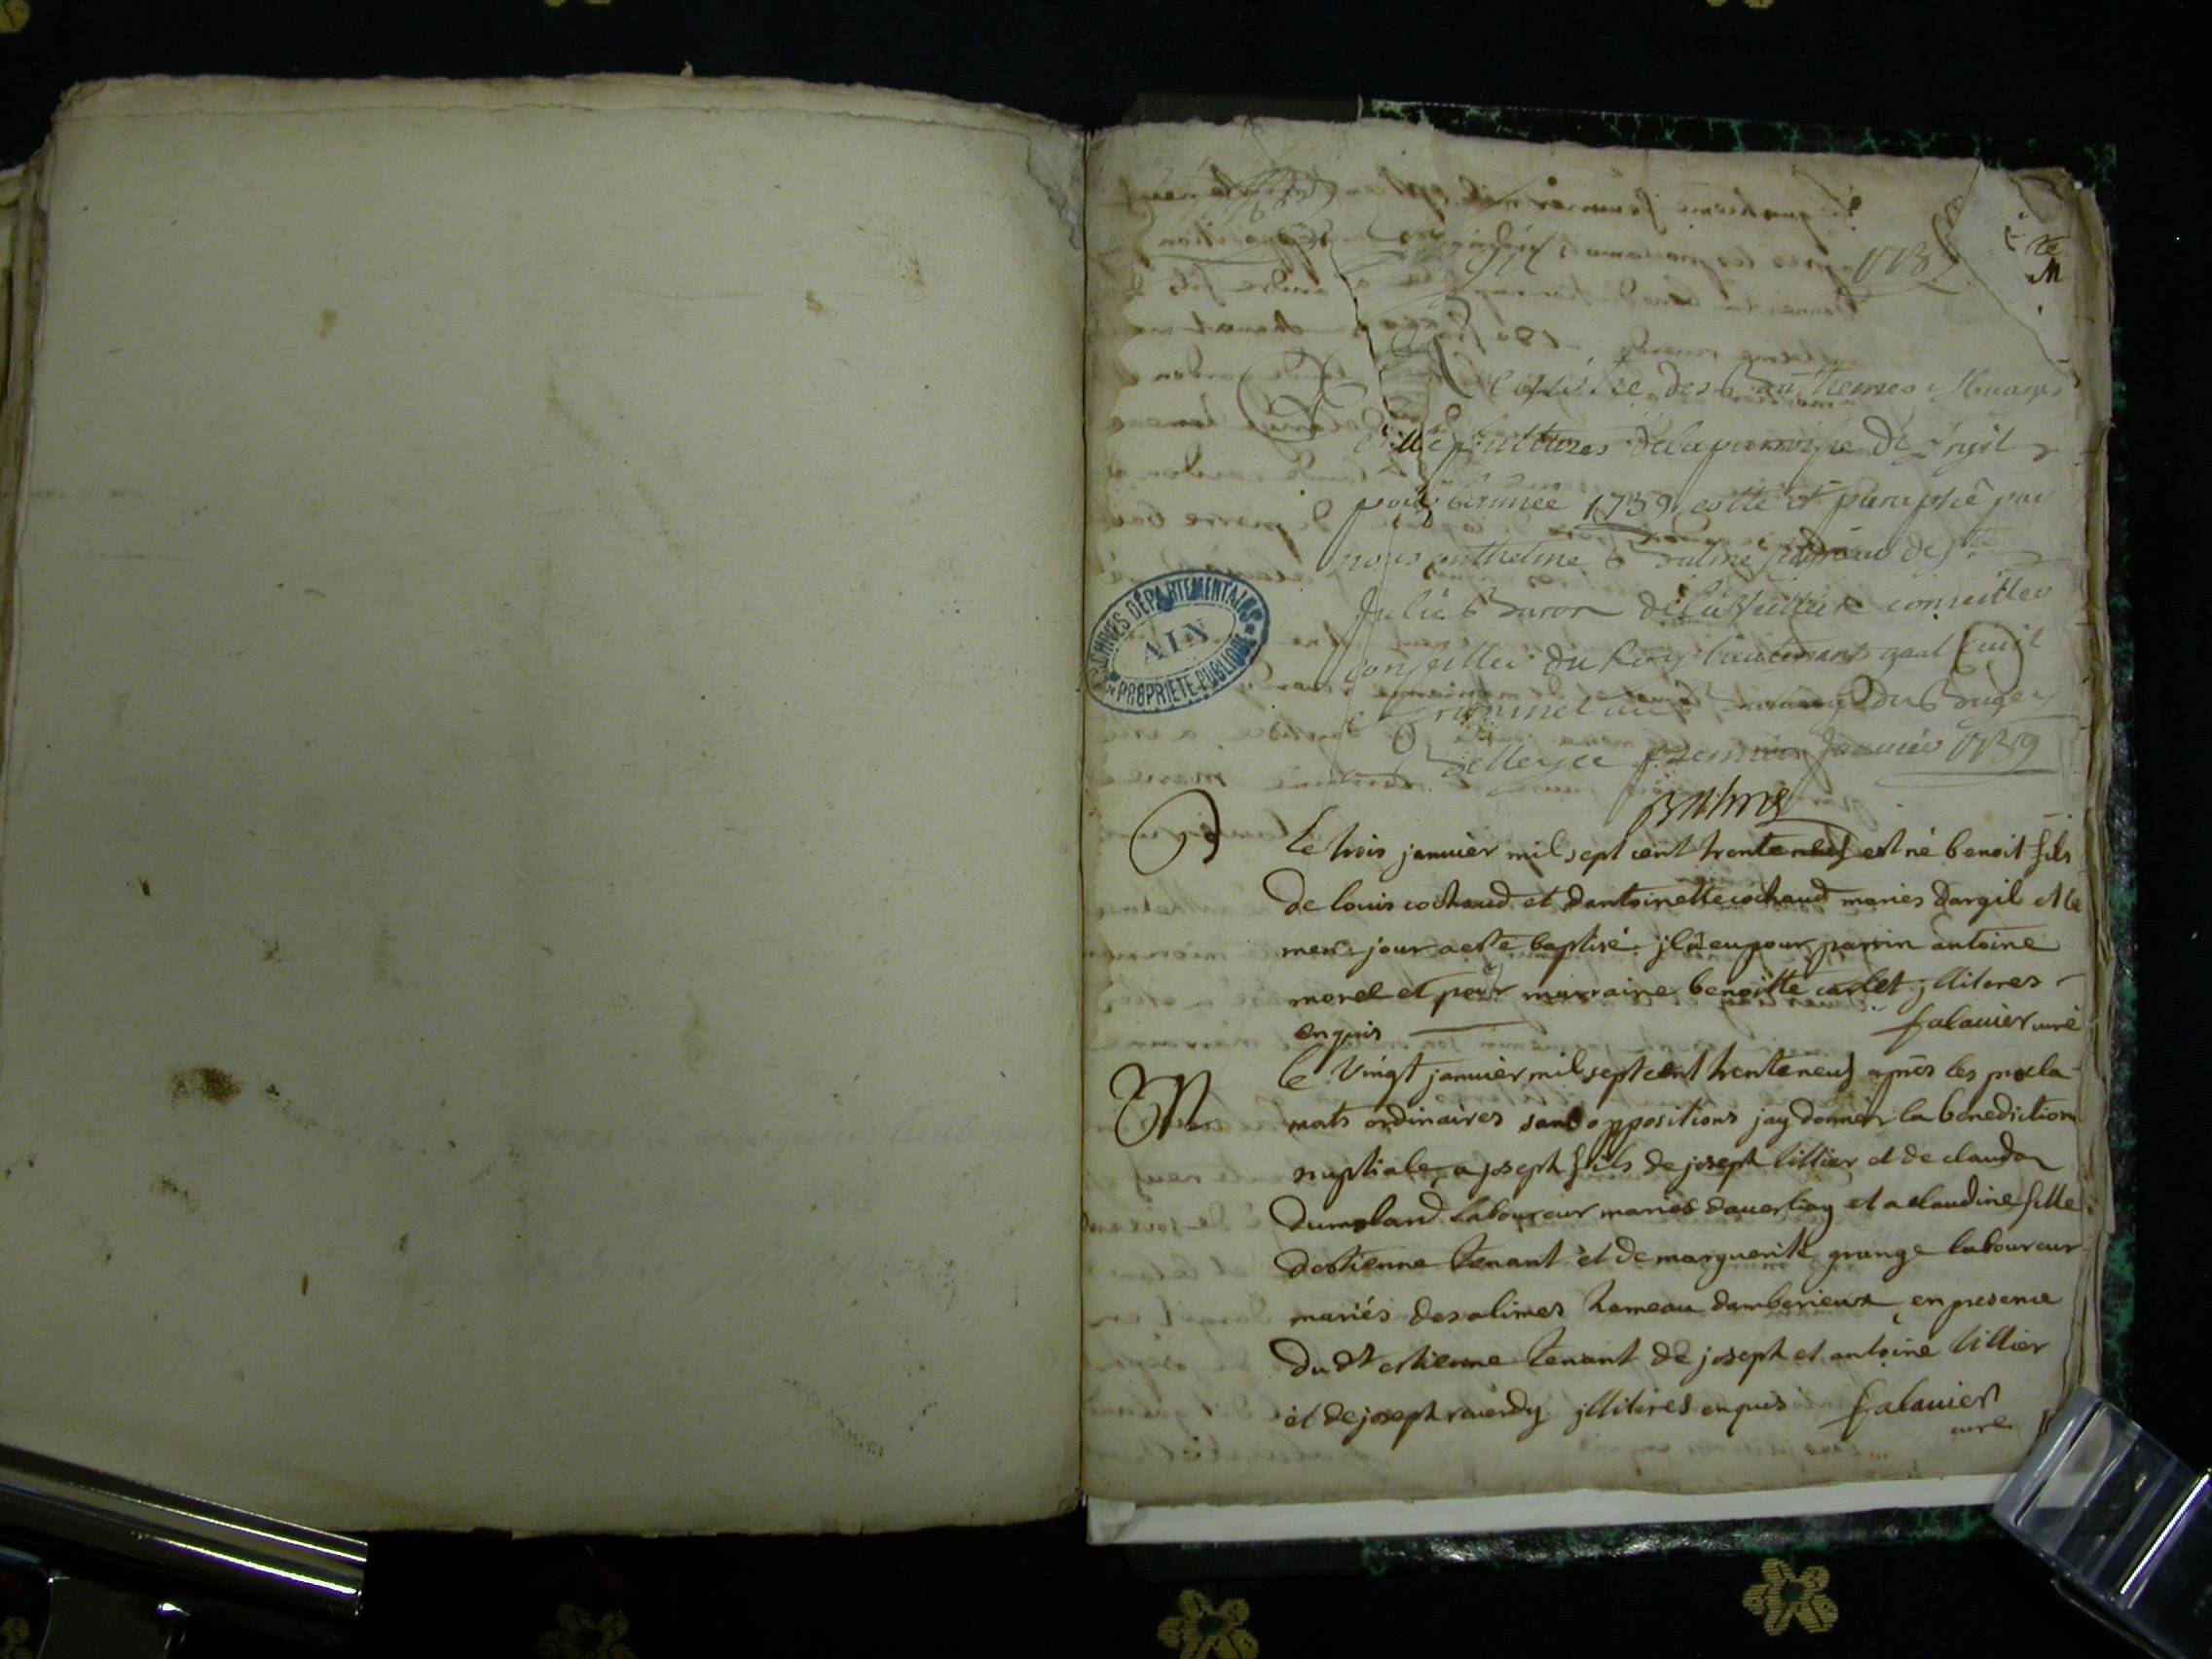 1739
Registre des Baptêmes Mariages
et Sepultures de la parroisse De
pour l'année 1739 cotté et paraphé par
nous anthelme Balme de Ste
Julie Baron de conseiller
conseiller du Roy lieutenant gnal Civil
et Criminel au Bailliage du Bugey
a Belley ce premier Janvier 1739
Balme
ARCHIVES DÉPARTEMENTALES
AIN
PROPRIÉTÉ PUBLIQUE
B
Le trois janvier mil sept cent trente neuf est né benoit fils
de louis cochaud et dantoinette cochaud mariés dargil et le
meme jour a esté baptisé. jl a eu pour parrin antoine
morel et pour marraine benoitte jlliteres
enquis falavier curé
M
le vingt janvier mil sept cent trente neuf apres les procla-
mats ordinaires sans oppositions jay donner la benediction
nuptiale a joseph fils de joseph lillier et de claudon
dumoland laboureur mariés et a claudine fille
destienne tenant et de marguerite grange laboureur
mariés des alimes hameau damberieux en presence
du dt estienne tenant de joseph et antoine lillier
et de joseph reverdy jlliteres enquis falavier
curé